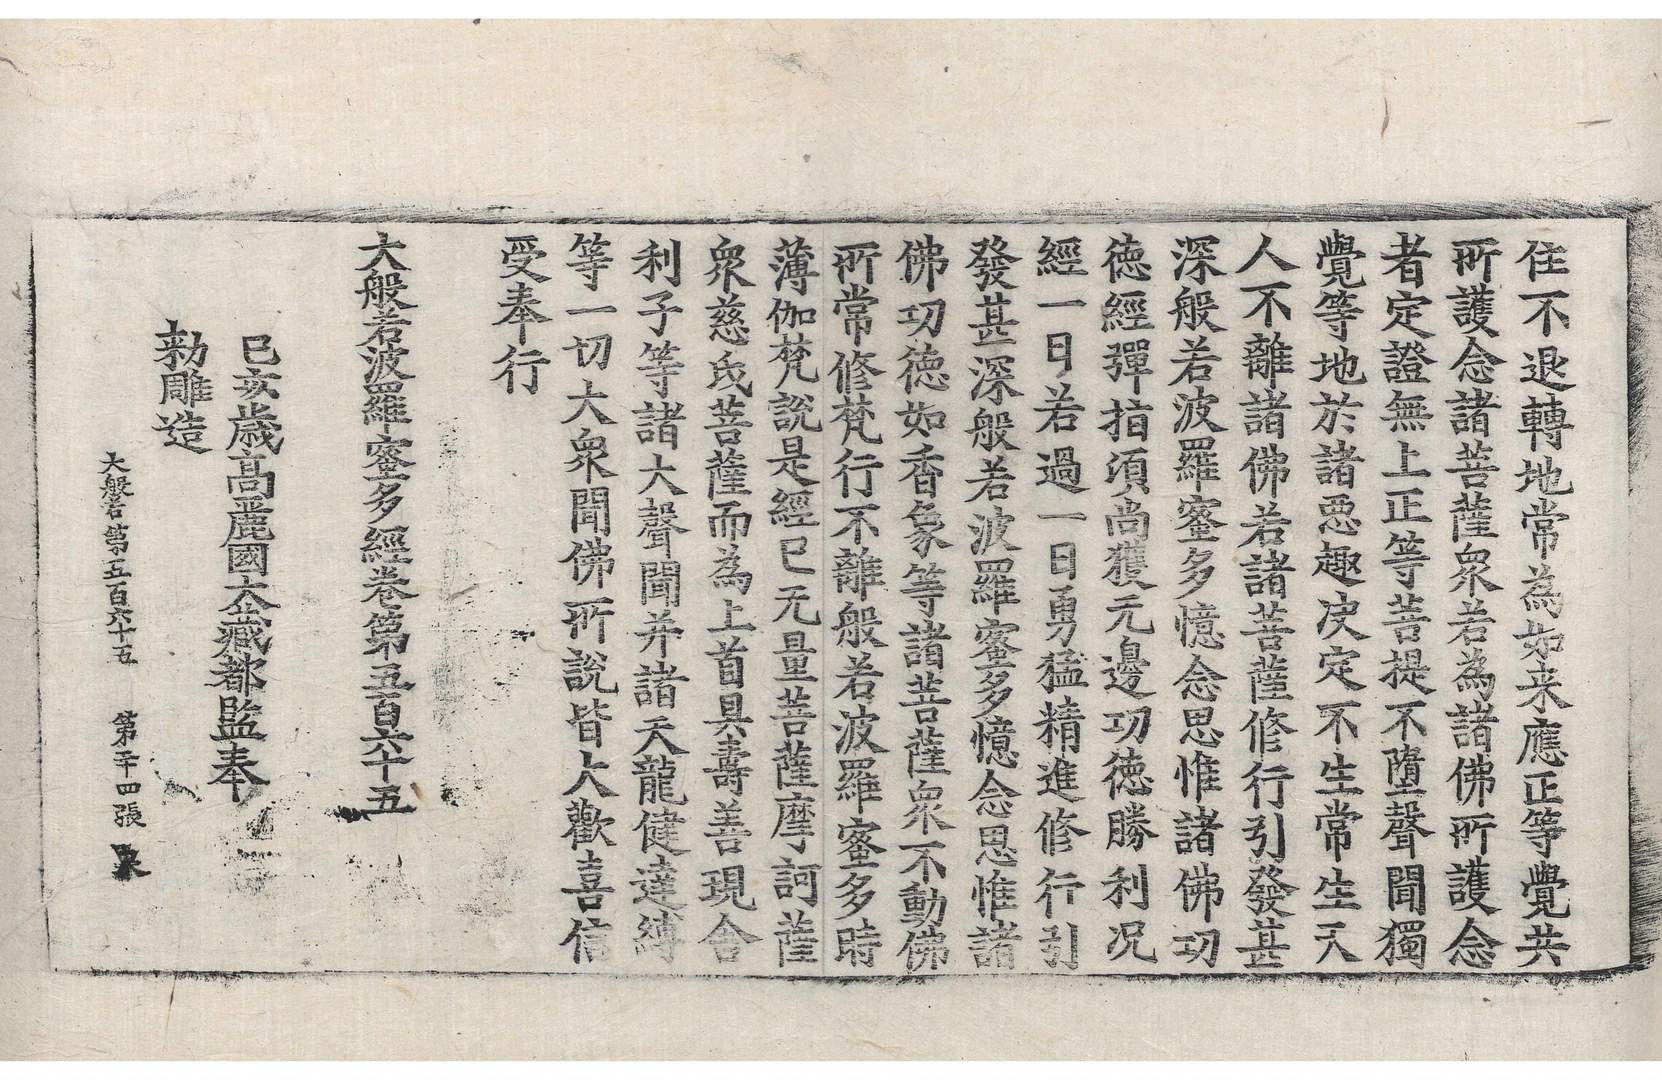 住不退轉地常為如来應正等覺共
所護念諸菩薩衆若為諸佛所護念
者定證無上正等菩提不墮聲聞獨
覺等地於諸惡趣决定不生常生天
人不離諸佛若諸菩薩修行引發甚
深般若波羅蜜多憶念思惟諸佛功
德經彈指頃尚獲无邊功德勝利况
經一日若過一日勇猛精進修行引
發甚深般若波羅蜜多憶念思惟諸
佛功德如香象等諸菩薩衆不動佛
所常修梵行不離般若波羅蜜多時
薄伽梵說是經已无量菩薩摩訶薩
衆慈氏菩薩而為上首具壽善現舍
利子等諸大聲聞并諸天龍健達縛
等一切大衆聞佛所說皆大歡喜信
受奉行
大般若波羅蜜多經卷第五百六十五
己亥歲高麗國大藏都監奉
勅雕造
大般若第五百六十五 第二十四張 柰